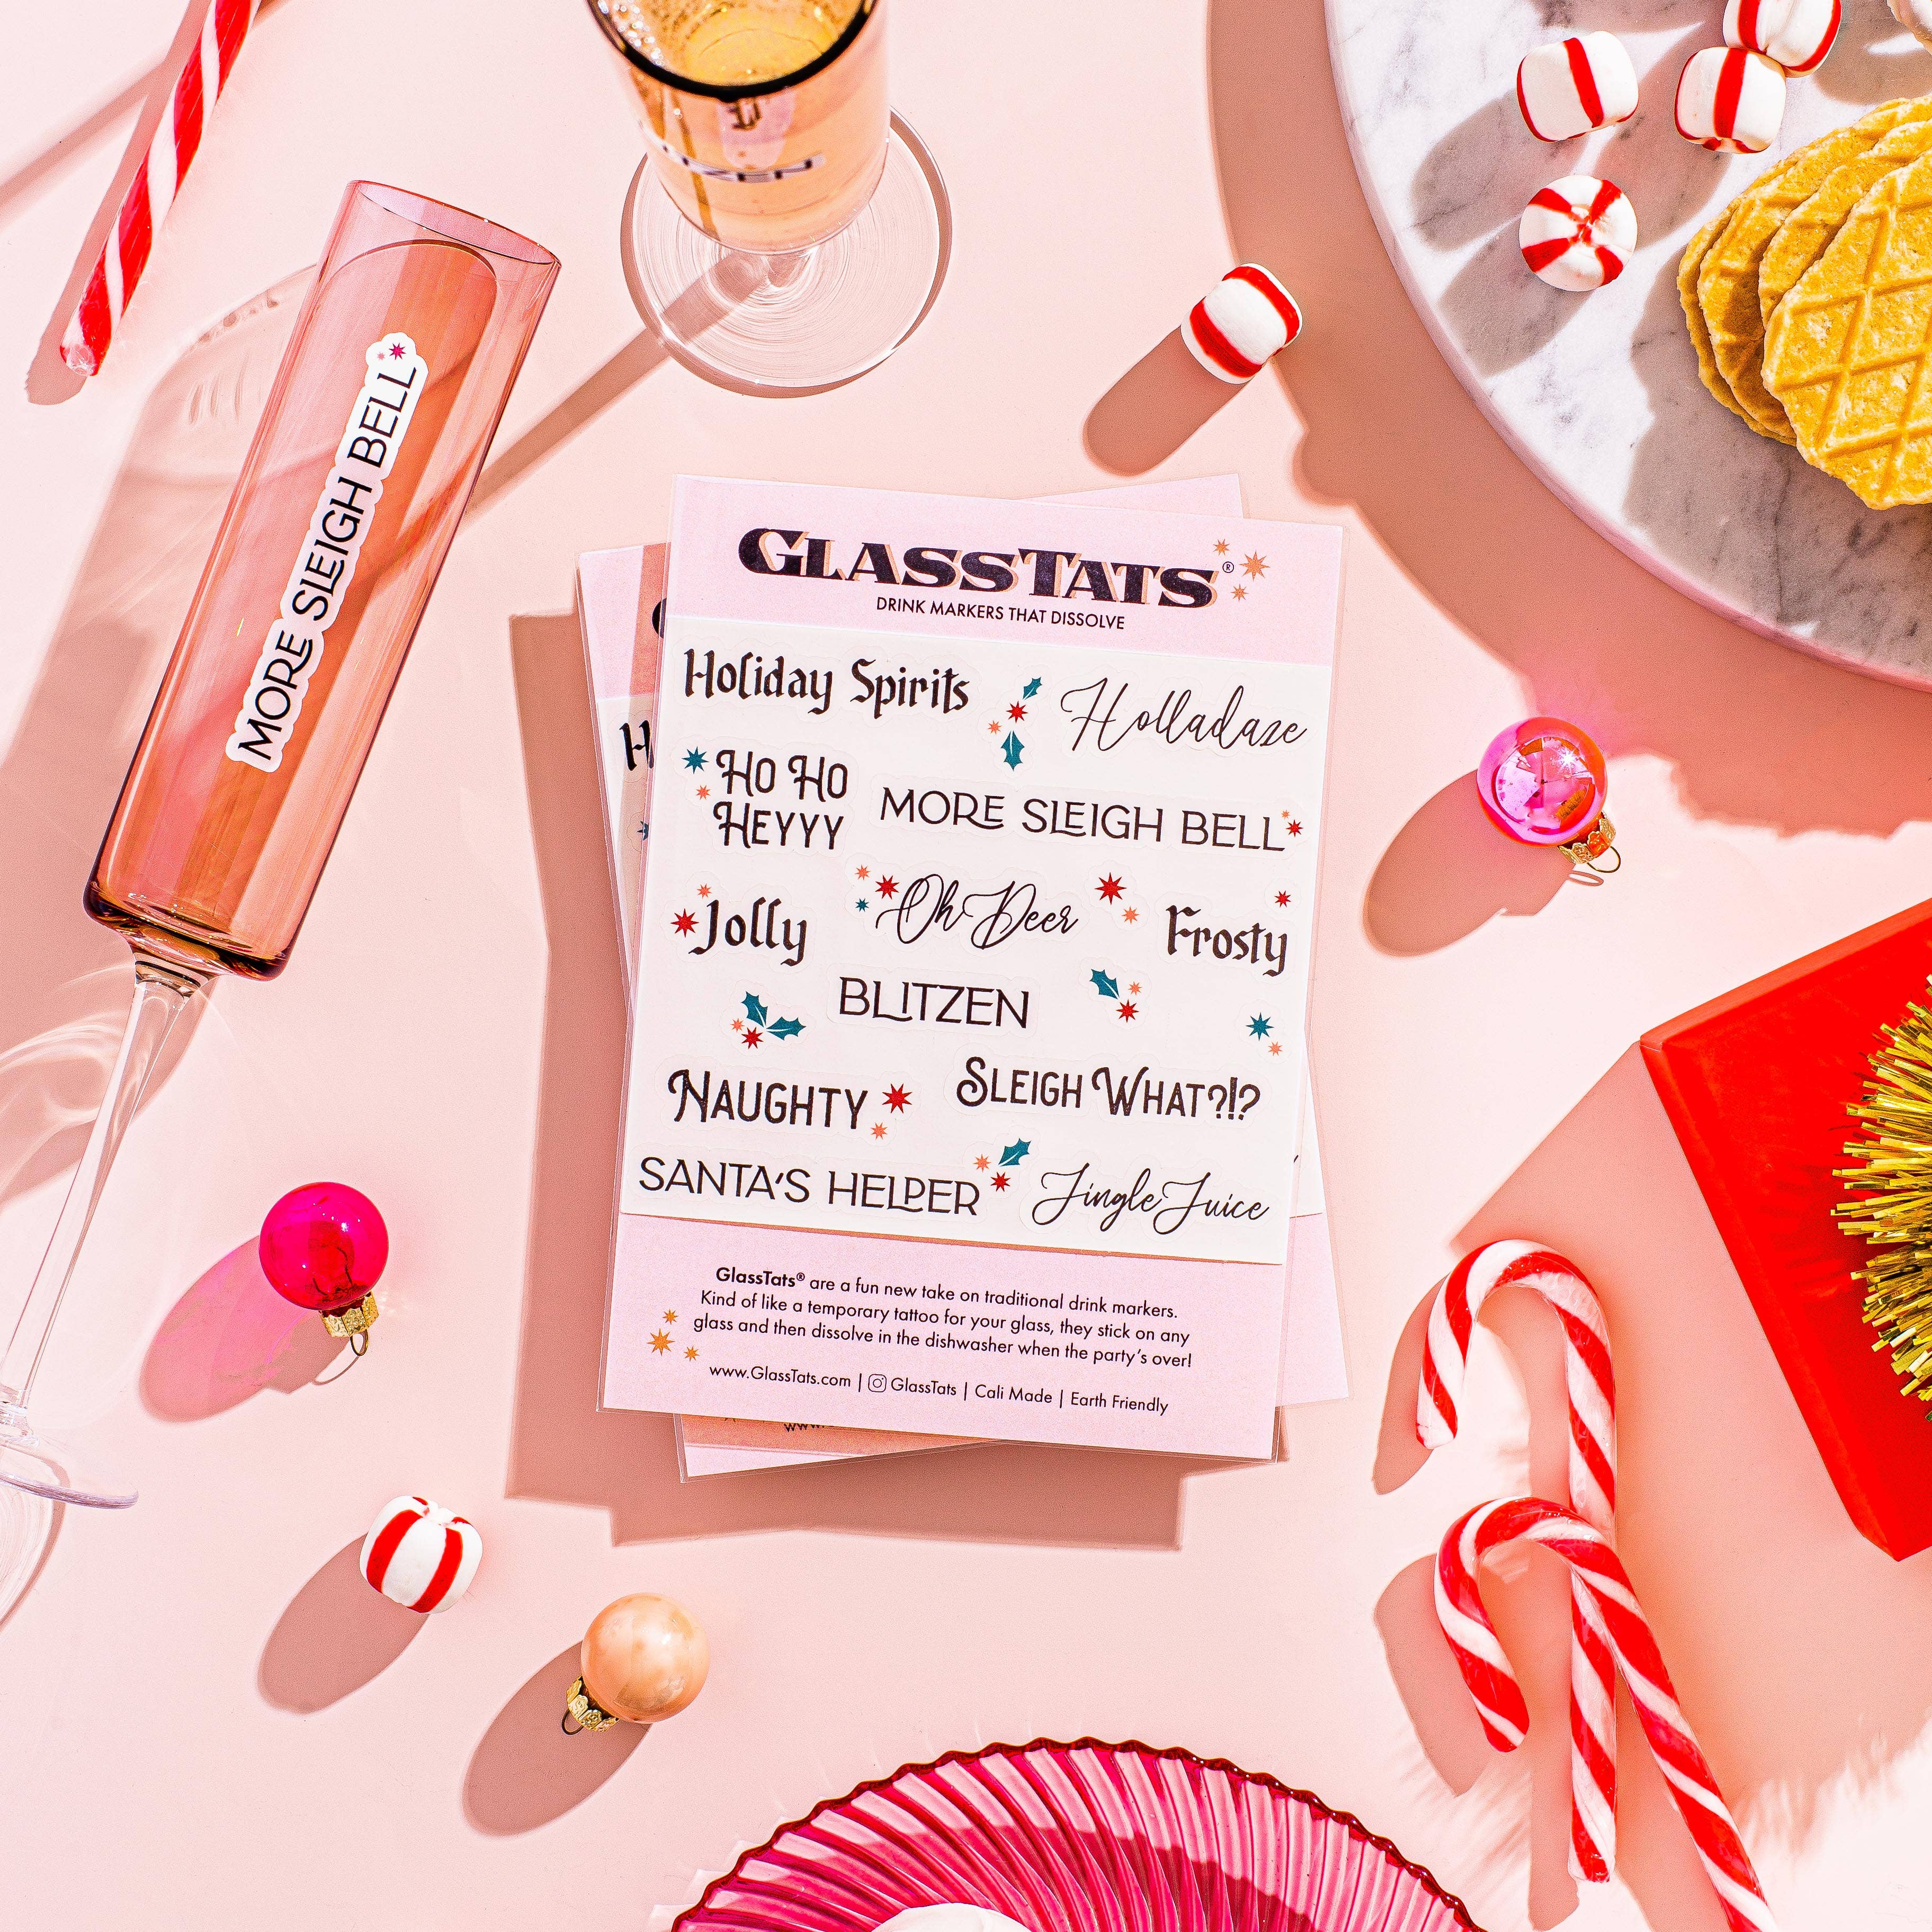 BLITZEN
MORE SLEIGH BELL
GLASSTATS®
DRINK MARKERS THAT DISSOLVE
Holiday Spirits
Holladaze
HO HO
HEYYY
MORE SLEIGH BELL
Jolly
Oh Deer
Frosty
BLITZEN
NAUGHTY
SLEIGH WHAT?!?
SANTA'S HELPER
Jingle Juice
GlassTats® are a fun new take on traditional drink markers.
Kind of like a temporary tattoo for your glass, they stick on any
glass and then dissolve in the dishwasher when the party's over!
www.GlassTats.com | GlassTats | Cali Made | Earth Friendly
H